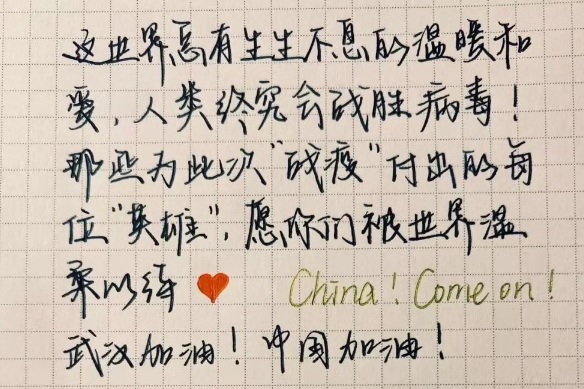 这世界总有生生不息的温暖和
爱，人类终究会战胜病毒！
那些为此次“战疫”付出的每
位“英雄”，愿你们被世界温
柔以待 ❤ China! Come on!
武汉加油！中国加油！